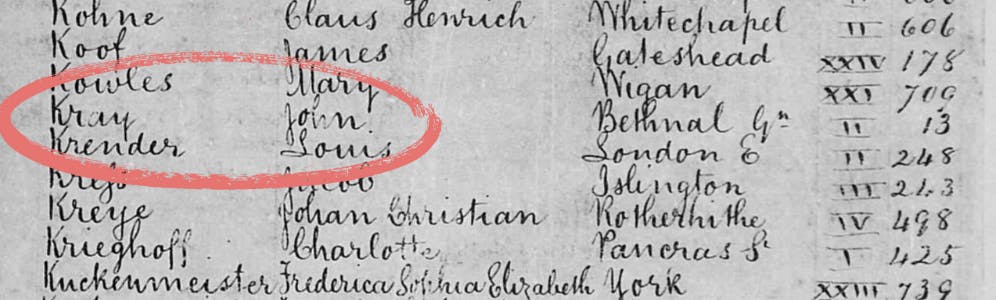 Kohne Claus Henrich Whitechapel II 606
Koof James Gateshead XXIV 178
Kowles Mary Wigan XXI 709
Kray John Bethnal Gn II 13
Krender Louis London E II 248
Kreſs Jacob Islington III 213
Kreye Johan Christian Rotherhithe IV 498
Krieghoff Charlotte Pancras St I 425
Kuckenmeister Frederica Sophia Elizabeth York XXIII 739